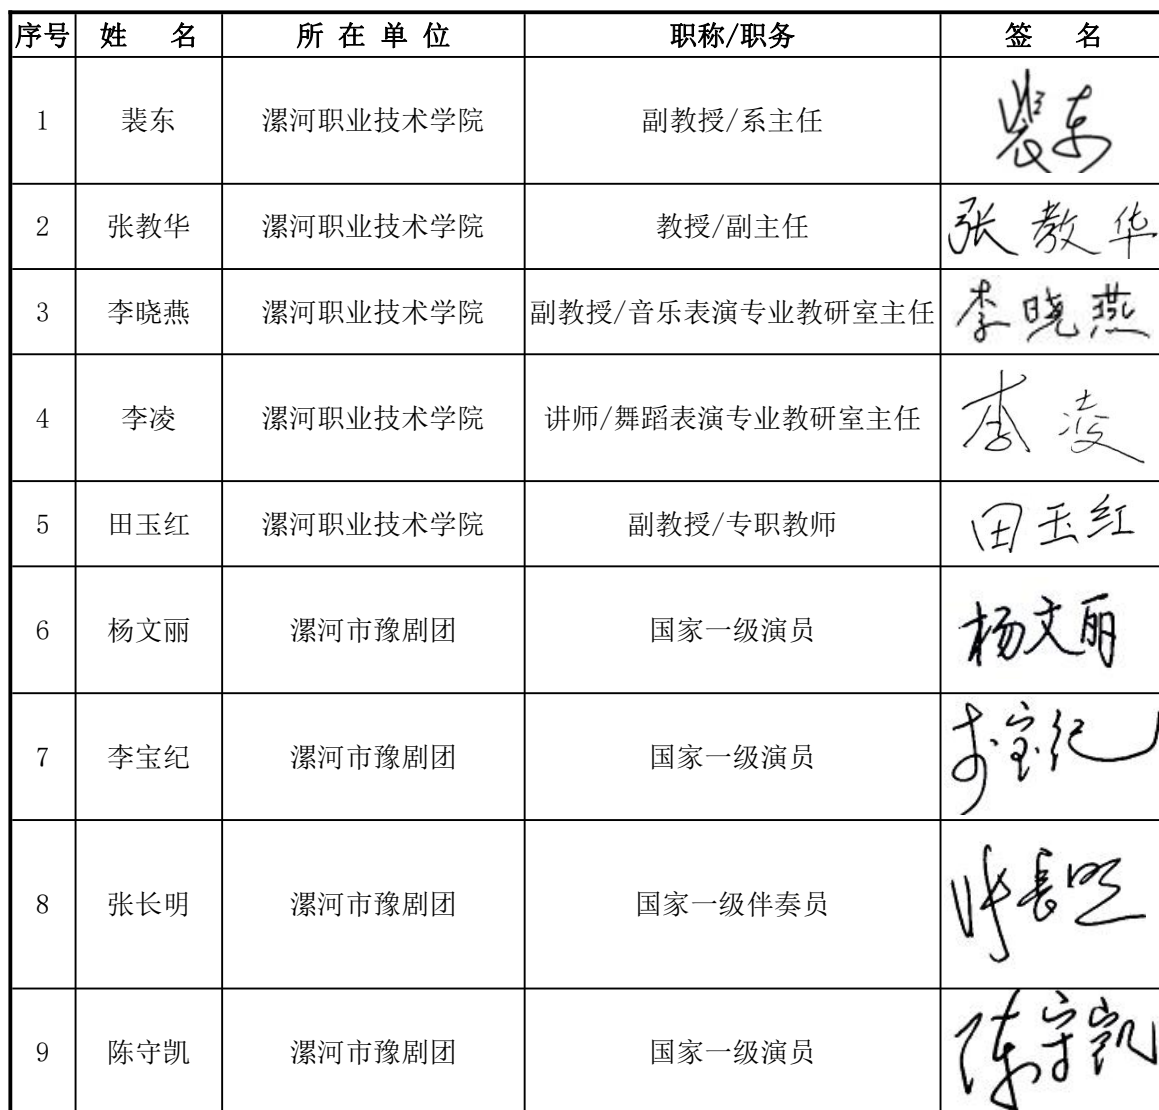 序号 姓 名 所 在 单 位 职称/职务 签 名
1 裴东 漯河职业技术学院 副教授/系主任 裴东
2 张教华 漯河职业技术学院 教授/副主任 张教华
3 李晓燕 漯河职业技术学院 副教授/音乐表演专业教研室主任 李晓燕
4 李凌 漯河职业技术学院 讲师/舞蹈表演专业教研室主任 李凌
5 田玉红 漯河职业技术学院 副教授/专职教师 田玉红
6 杨文丽 漯河市豫剧团 国家一级演员 杨文丽
7 李宝纪 漯河市豫剧团 国家一级演员 李宝纪
8 张长明 漯河市豫剧团 国家一级伴奏员 张長明
9 陈守凯 漯河市豫剧团 国家一级演员 陈守凯